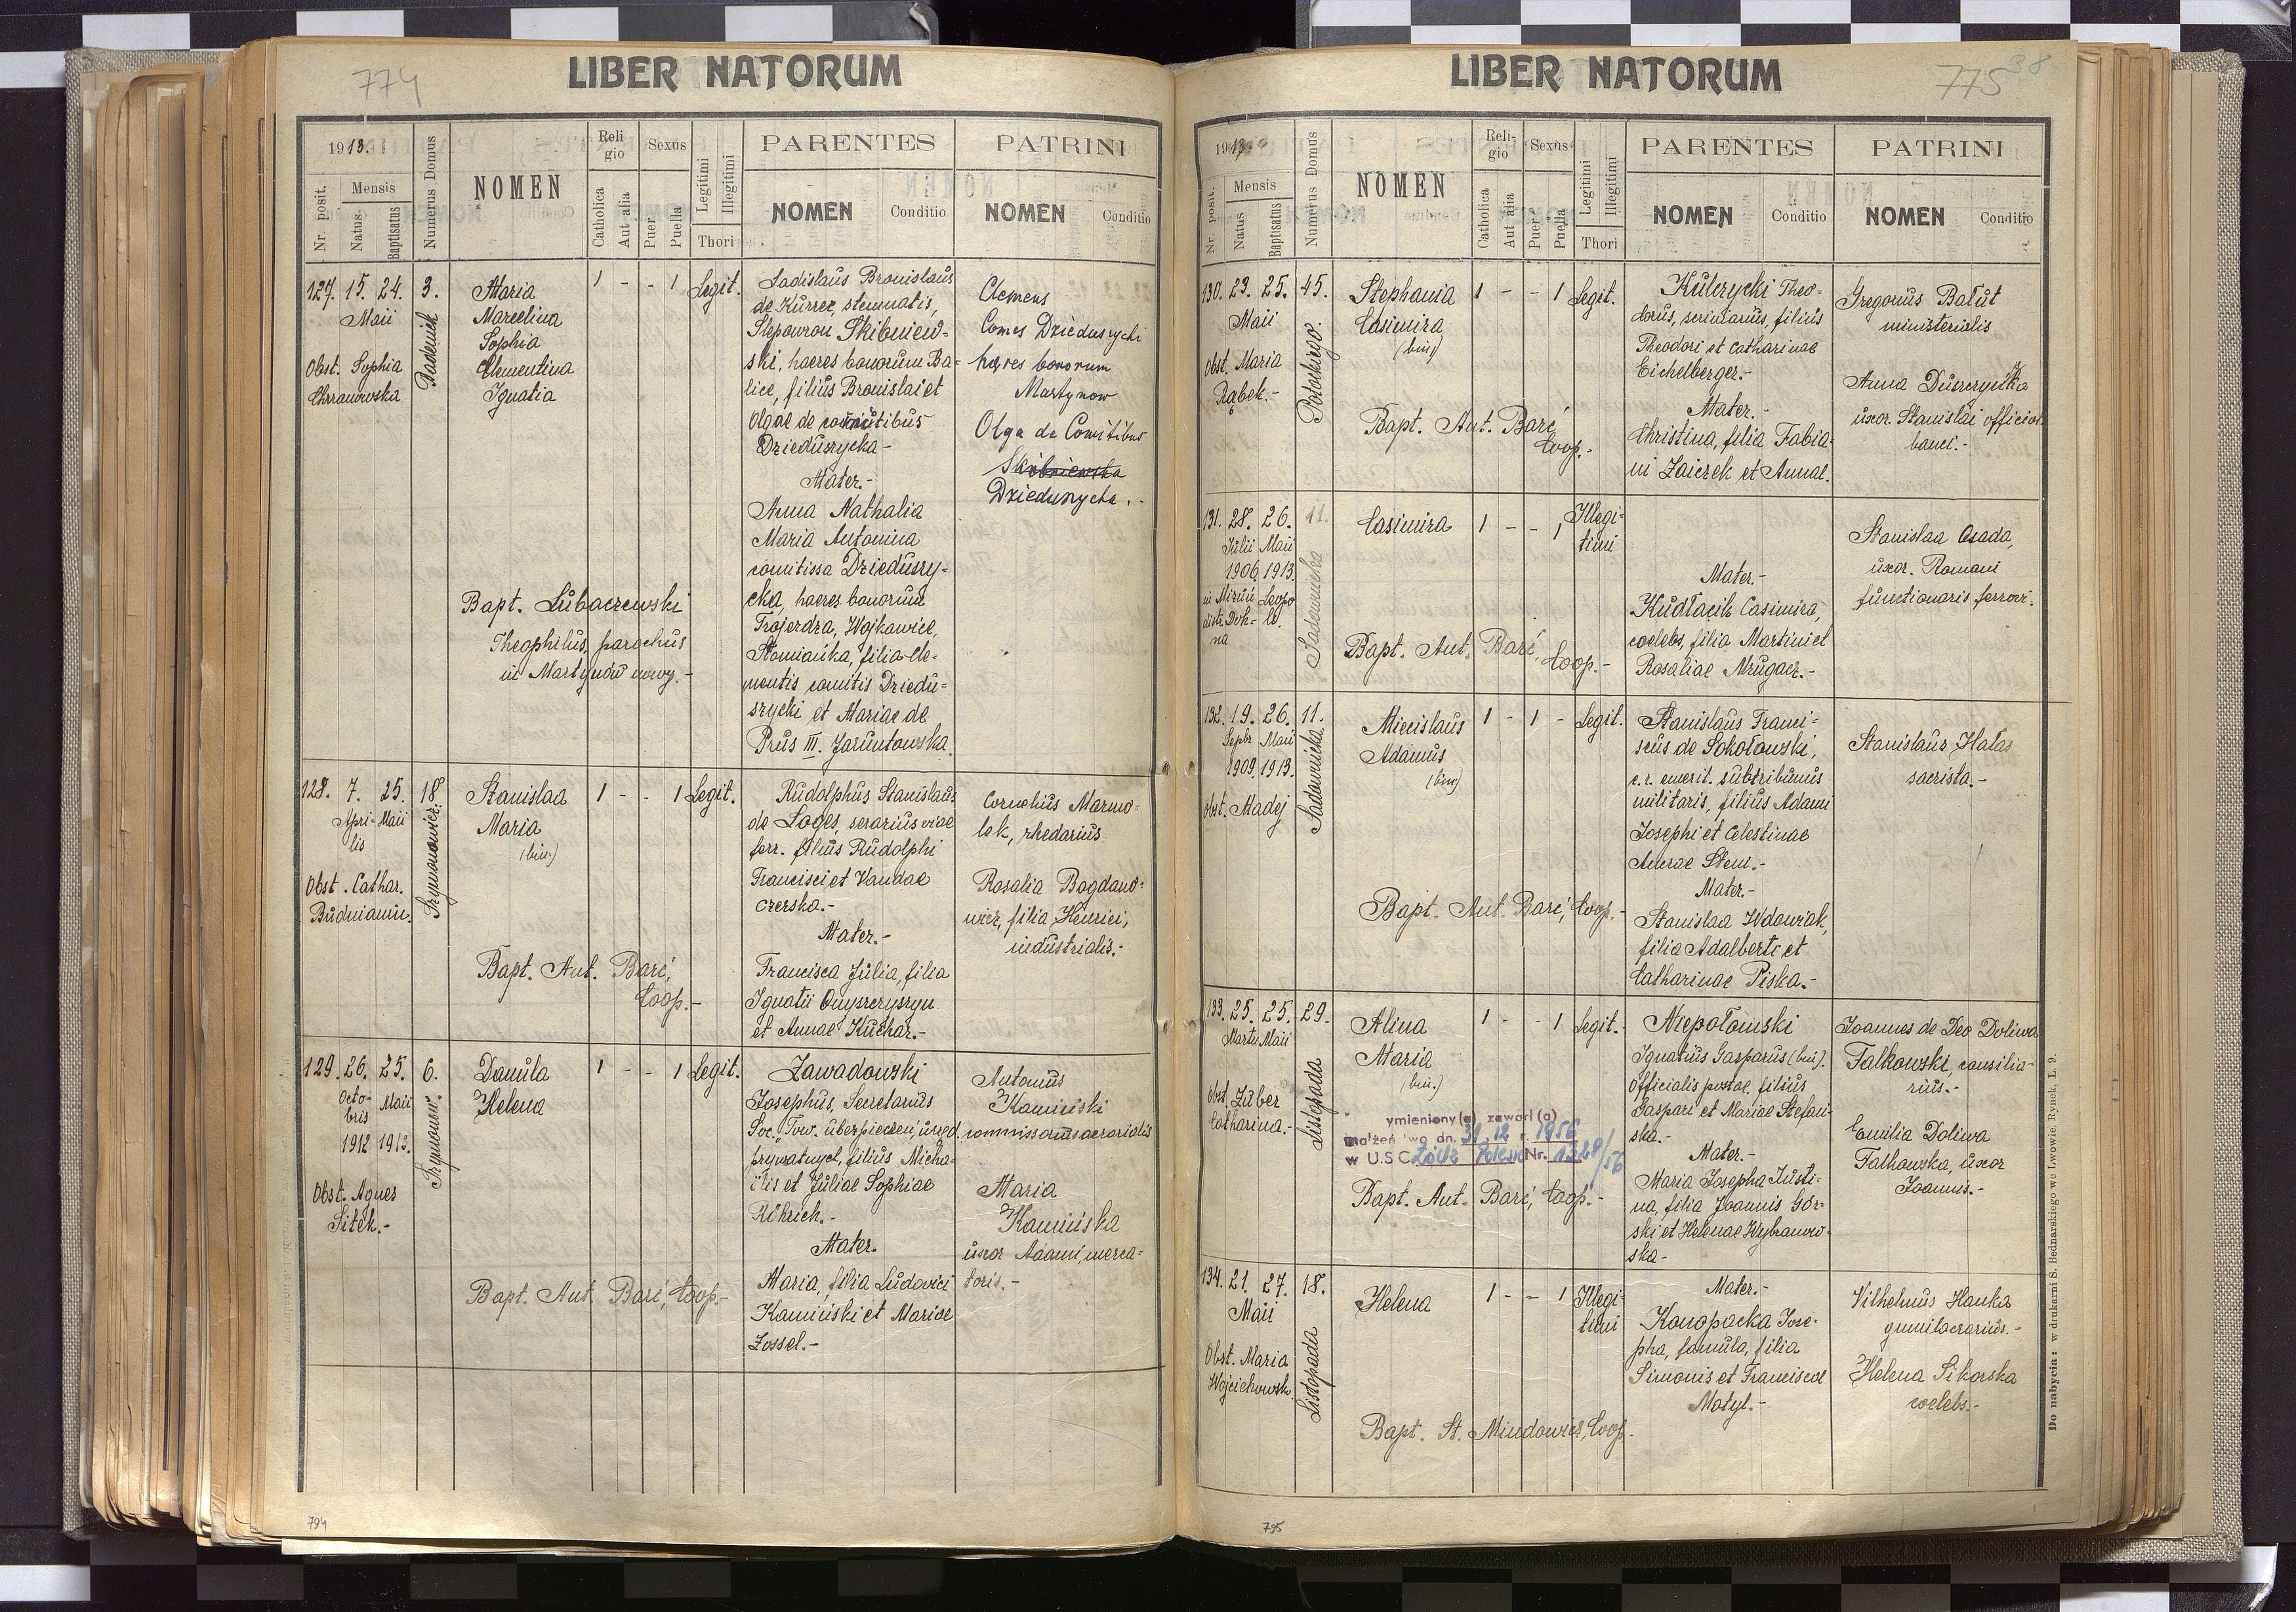 774
LIBER NATORUM
1913.
Nr. posit.
Mensis
Natus
Baptisatus
Numerus Domus
NOMEN
Religio
Catholica
Aut alia
Sexus
Puer
Puella
Legitimi
Illegitimi
Thori
PARENTES
NOMEN
Conditio
PATRINI
NOMEN
Conditio
127. 15. 24. 3.
Maii
Obst. Sophia
Chrzanowska
Maria
Marcelina
Sophia
Clementina
Ignatia
1 - - 1 Legit.
Bapt. Lubaczewski
Theophilus, parochus
in Martynów nowy.-
Ladislaus Bronislaus
de Kurzec, stemmatis,
Slepowron Skibniew-
ski, haeres bonorum Ba-
lice, filius Bronislai et
Olgae de comitibus
Dzieduszycka-
Mater.-
Anna Nathalia
Maria Antonina
comitissa Dzieduszy-
cka, haeres bonorum
Trójerdza, Wojkowice,
Słomianka, filia Cle-
mentis comitis Dziedu-
szycki et Mariae de
Prus III. Jaruntowska.
Clemens
Comes Dzieduszycki
haeres bonorum
Martynow
Olga de Comitibus
Skibniewska
Dzieduszycka.-
128. 7. 25. 18
Aprilis Maii
Szymonowicz.
Obst. Cathar.
Budniamin.
Stanislaa
Maria
(bin.)
1 - - 1 Legit.
Bapt. Ant. Barć,
Coop.-
Rudolphus Stanislaus
de Loges, serarius viae
ferr. filius Rudolphi
Francisci et Vandae
czerska.-
Mater.-
Francisca Julia, filia
Ignatii Onyszczyszyn
et Annae Kuchar.-
Cornelius Marmo-
lek, rhedarius
Rosalia Bogdano-
wicz, filia Henrici,
industrialis.-
129. 26. 25. 6.
Octobris Maii
1912 1913.
Szymonow.
Obst. Agnes
Sitek.-
Danuta
Helena
1 - - 1 Legit.
Bapt. Ant. Barć, Coop.-
Zawadowski
Josephus, Secretarius
Soc. "Tow. ubezpieczeń, urzęd.
prywatnych, filius Micha-
ëlis et Juliae Sophiae
Röhrich.-
Mater.
Maria, filia Ludovici
Kamiński et Mariae
Zossel.-
Antonius
Kamiński
commissarius aerarialis
Maria
Kamińska
uxor Adami, merca-
toris.-
794
LIBER NATORUM
775
38
1913
Nr. posit.
Mensis
Natus
Baptisatus
Numerus Domus
NOMEN
Religio
Catholica
Aut alia
Sexus
Puer
Puella
Legitimi
Illegitimi
Thori
PARENTES
NOMEN
Conditio
PATRINI
NOMEN
Conditio
130. 23. 25. 45.
Maii
Potockiego.
Obst. Maria
Rąbek.-
Stephania
Casimira
(bin)
1 - - 1 Legit.
Bapt. Ant. Barć
Coop.-
Kulczycki Theo-
dorus, scriniarius, filius
Theodori et Catharinae
Eichelberger.-
Mater.-
Christina, filia Fabia-
ni Zaiczek et Annae.
Gregorius Bałut
ministerialis
Anna Duszczyńska
uxor. Stanislai official.
banci.-
131. 28. 26. 11.
Julii Maii
1906. 1913.
in Mizuń Leopo
distr. Doli- li.
na
Sadownicka
Casimira
1 - - 1 Illegi-
timi
Bapt. Ant. Barć, Coop.-
Mater.-
Kudłacik Casimira,
coelebs, filia Martini et
Rosaliae Mrugacz.-
Stanislaa Osada,
uxor. Romani
functionaris ferrovi.
132. 19. 26. 11.
Septr. Maii
1909. 1913.
Sadownicka.
Obst. Madej
Miecislaus
Adamus
(bin)
1 - 1 - Legit.
Bapt. Ant. Barć, Coop.-
Stanislaus Franci-
scus de Sokołowski,
c. r. emerit. subtribunus
militaris, filius Adami
Josephi et Celestinae
Amrae Stem.-
Mater.-
Stanislaa Wdowiak,
filia Adalberti et
Catharinae Piska.-
Stanislaus Hałas
sacrista.-
133. 25. 25. 29.
Martii Maii
Listopada
Obst. Zuber
Catharina.-
Alina
Maria
(bin.)
1 - - 1 Legit.-
ymieniony(a) zawarł(a)
małżeństwo dn. 31.12 r. 1956
w U.S.C. Łódź Polesie Nr. 1328/56
Bapt. Ant. Barć, Coop.-
Niepołomski
Ignatius Gasparus (bin).
officialis postae, filius
Gaspari et Mariae Stefań-
ska.-
Mater.-
Maria Josepha Justi-
na, filia Joannis Gór-
ski et Helenae Wybranow-
ska-
Joannes de Deo Doliwa
Falkowski, consilia-
rius.-
Emilia Doliwa
Falkowska, uxor
Joannis.-
134. 21. 27. 18.
Maii
Listopada
Obst. Maria
Wojciechowsk.
Helena
1 - - 1 Illegi-
timi
Bapt. St. Mindowicz, Coop.-
Mater.-
Konopacka Jose-
pha, famula, filia
Simonis et Franciscae
Motyl.-
Vilhelmus Hanka
gumilacrarius.-
Helena Sikorska
coelebs.-
Do nabycia: w drukarni S. Bednarskiego we Lwowie, Rynek, L. 9.
795